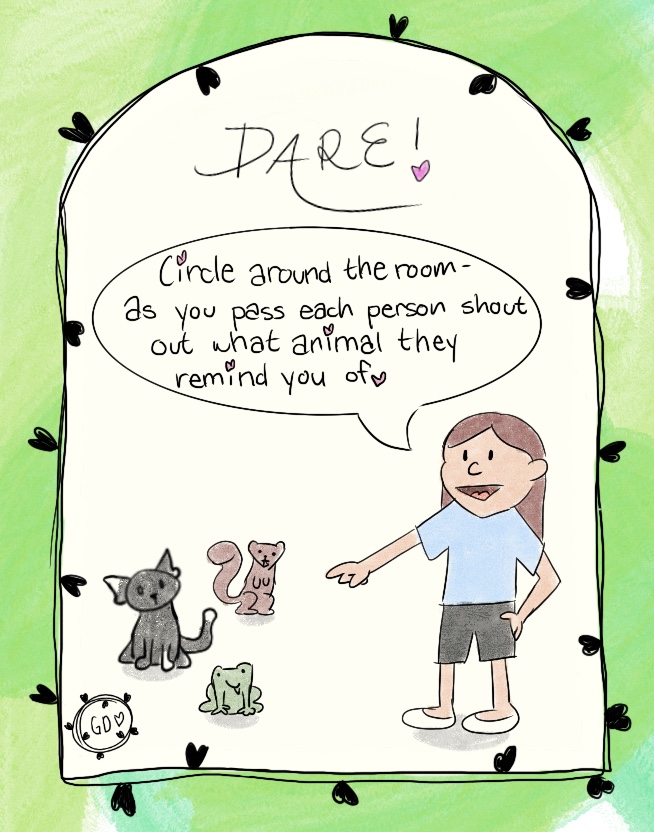 DARE!
Circle around the room-
as you pass each person shout
out what animal they
remind you of
GD